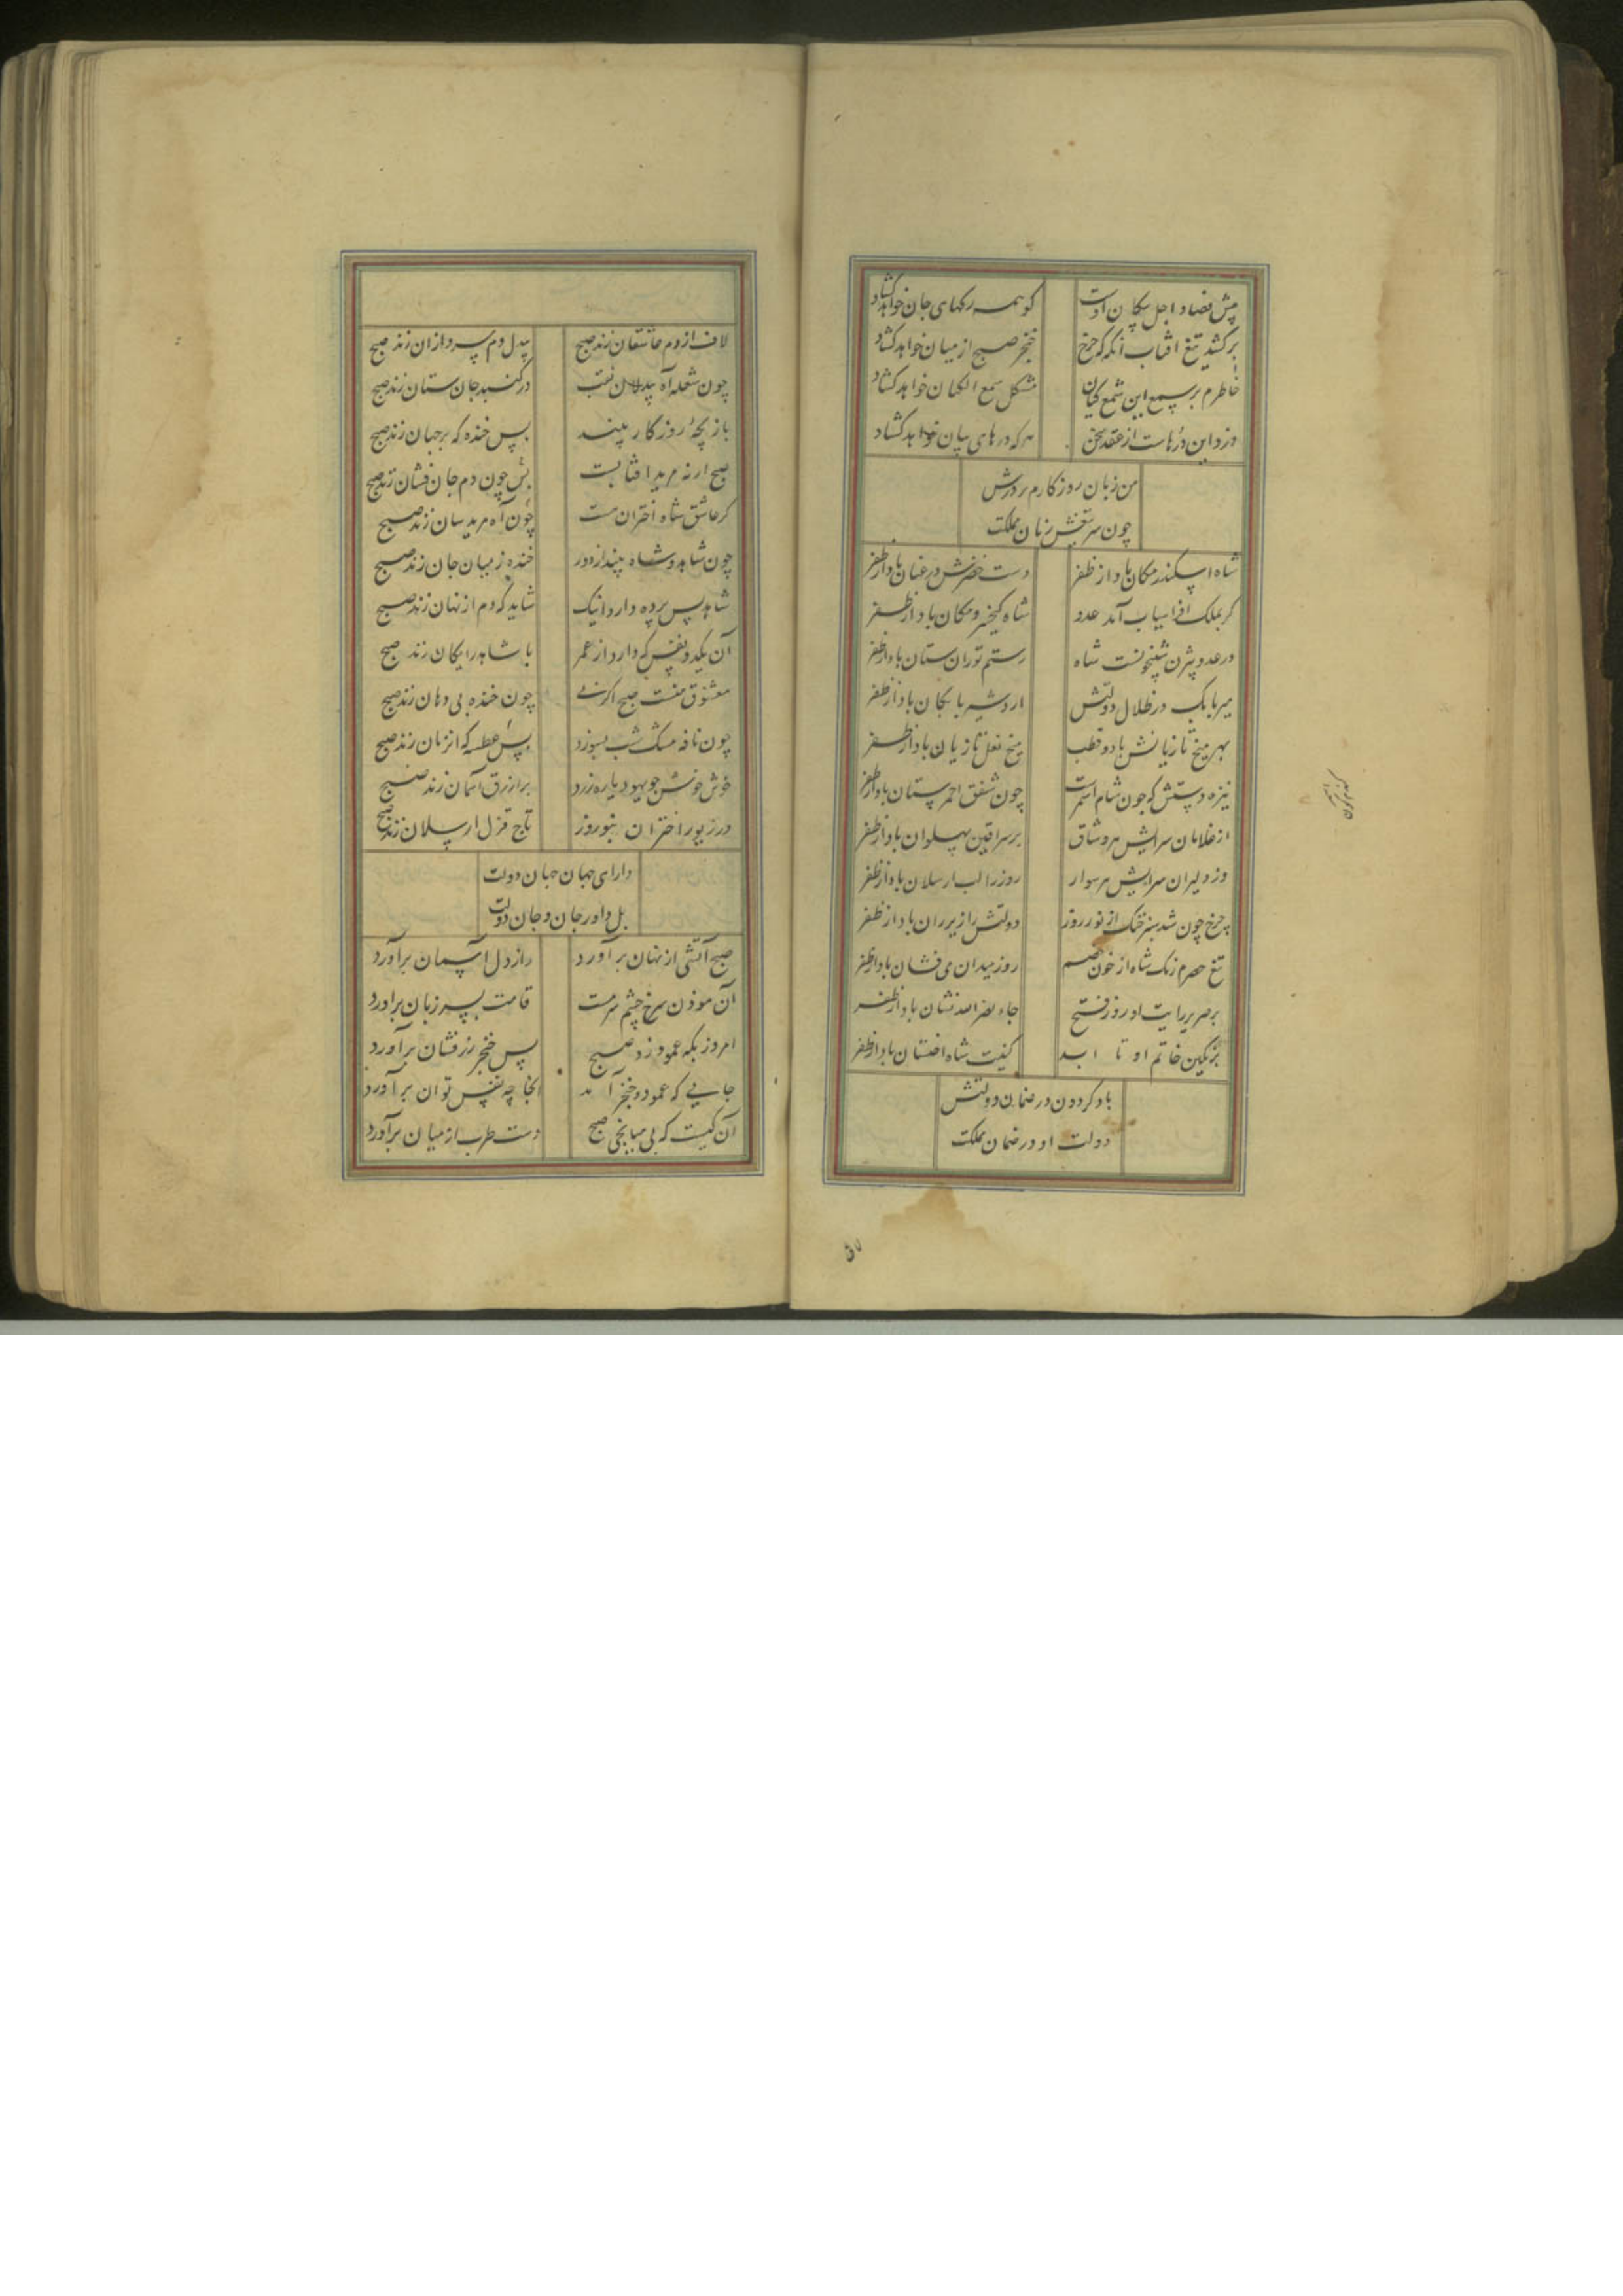 پیش فصاد اجل پیکان اوست کو همه رکهای جان خواهد کشاد
برکشد تیغ آفتاب آنکه که چرخ خنجر صبح از میان خواهد کشاد
خاطرم بر سمع این شمع کیان مشکل سمع الکیان خواهد کشاد
دزد این درهاست از عقد سخن هر که درهای بیان خواهد کشاد
من زبان روزکارم بر درش
چون سر تیغش زبان مملکت
شاه اسکندر مکان باد از ظفر دست خضرش در عنان باد از ظفر
کر بملک افراسیاب آمد عدو شاه کیخسرو مکان باد از ظفر
در عدو بیژن شبیخونست شاه رستم توران ستان باد از ظفر
میر بابک در ظلال دولتش اردشیر بابکان باد از ظفر
بهر میخ تازیانش باد و قطب میخ نعل تازیان باد از ظفر
نیزه دستش که چون شام اسمرست چون شفق احمر ستان باد از ظفر
از غلامان سرایش هر وشاق بر سر اقین پهلوان باد از ظفر
وز دلیران سرایش هر سوار روز را الب ارسلان باد از ظفر
چرخ چون شد سبز خنک از نور روز دولتش را زیر ران باد از ظفر
تیغ حصرم رنک شاه از خون خصم روز میدان می فشان باد از ظفر
بر حریر رایت او روز فتح جاء نصر الله نشان باد از ظفر
بر نکین خاتم او تا ابد کنیت شاه اخستان باد از ظفر
باد کردون در ضمان دولتش
دولت او در ضمان مملکت
لاف از دم عاشقان زند صبح بیدل دم سرد ازان زند صبح
چون شعله آه بیدلان نقب در کنبد جان ستان زند صبح
بازیچه روزکار بیند بس خنده که بر جهان زند صبح
صبح ارنه مرید آفتابست پس چون دم جان فشان زند صبح
کر عاشق شاه اختران نیست چون آه مریدسان زند صبح
چون شاهد و شاه بیند از دور خنده ز میان جان زند صبح
شاهد پس پرده دارد اینک شاید که دم از نهان زند صبح
آن یکدو نفس که دارد از عمر با شاهد رایکان زند صبح
معشوق منست صبح اکر نی چون خنده بی دهان زند صبح
چون نافه مشک شب بسوزد بس عطسه که انزمان زند صبح
خوش خوش چو یهود پاره زرد بر ازرق آسمان زند صبح
در زیور اختران بنوروز تاج قزل ارسلان زند صبح
دارای جهان جهان دولت
بل داور جان و جان دولت
صبح آتشی از نهان برآورد راز دل آسمان برآورد
آن موذن سرخ چشم سرمست قامت بسر زبان برآورد
امروز بکه عمود زد صبح پس خنجر زرفشان برآورد
جایی که عمود و خنجر آمد آنجا چه نفس توان برآورد
آن کیست که بی میانجی صبح دست طرب از میان برآورد